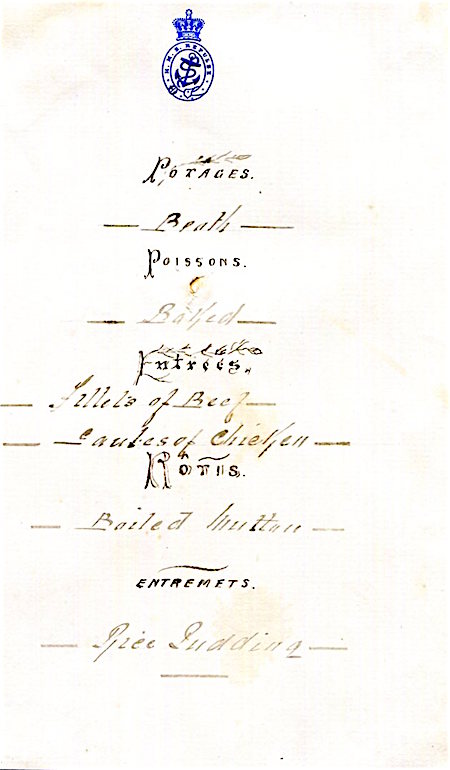 H.M.S. REPULSE
POTAGES.
— Broth —
POISSONS.
— Baked —
Entrées.
— Fillets of Beef —
— Sautes of Chicken —
RÔTIS.
— Boiled Mutton —
ENTREMETS.
— Rice Pudding —